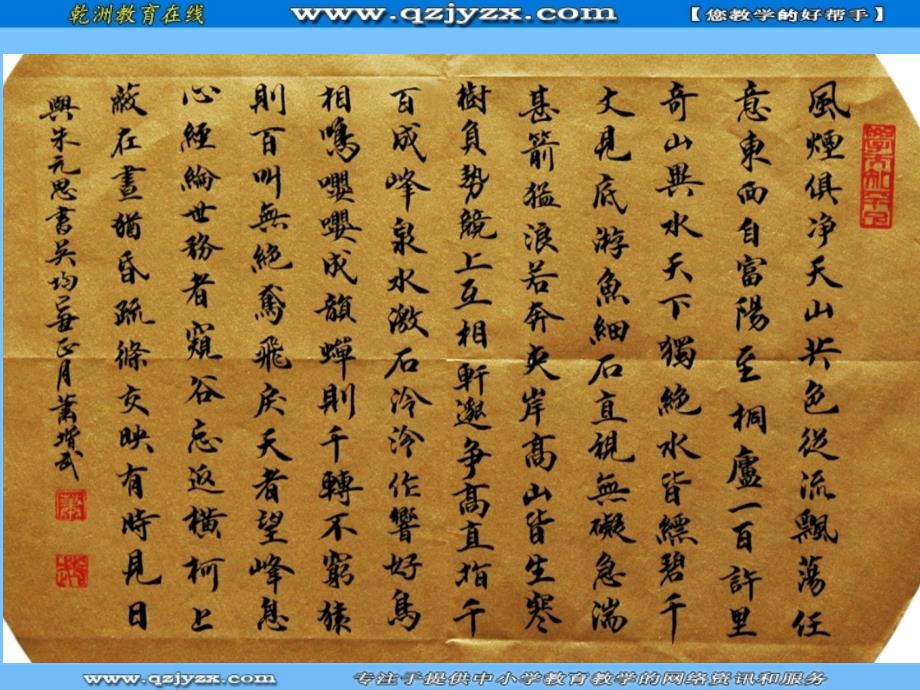 乾洲教育在线
www.qzjyzx.com
【您教学的好帮手】
風煙俱净天山共色從流飄蕩任
意東西自富陽至桐廬一百許里
奇山異水天下獨絕水皆縹碧千
丈見底游魚細石直視無礙急湍
甚箭猛浪若奔夹岸高山皆生寒
樹負勢競上互相軒邈争高直指千
百成峰泉水激石泠泠作響好鳥
相鳴嚶嚶成韻蟬則千轉不窮猿
則百叫無絕鳶飛戾天者望峰息
心經綸世務者窺谷忘返橫柯上
蔽在晝猶昏疏條交映有時見日
與朱元思書吴均正月蕭增武
www.qzjyzx.com
专注于提供中小学教育教学的网络资讯和服务